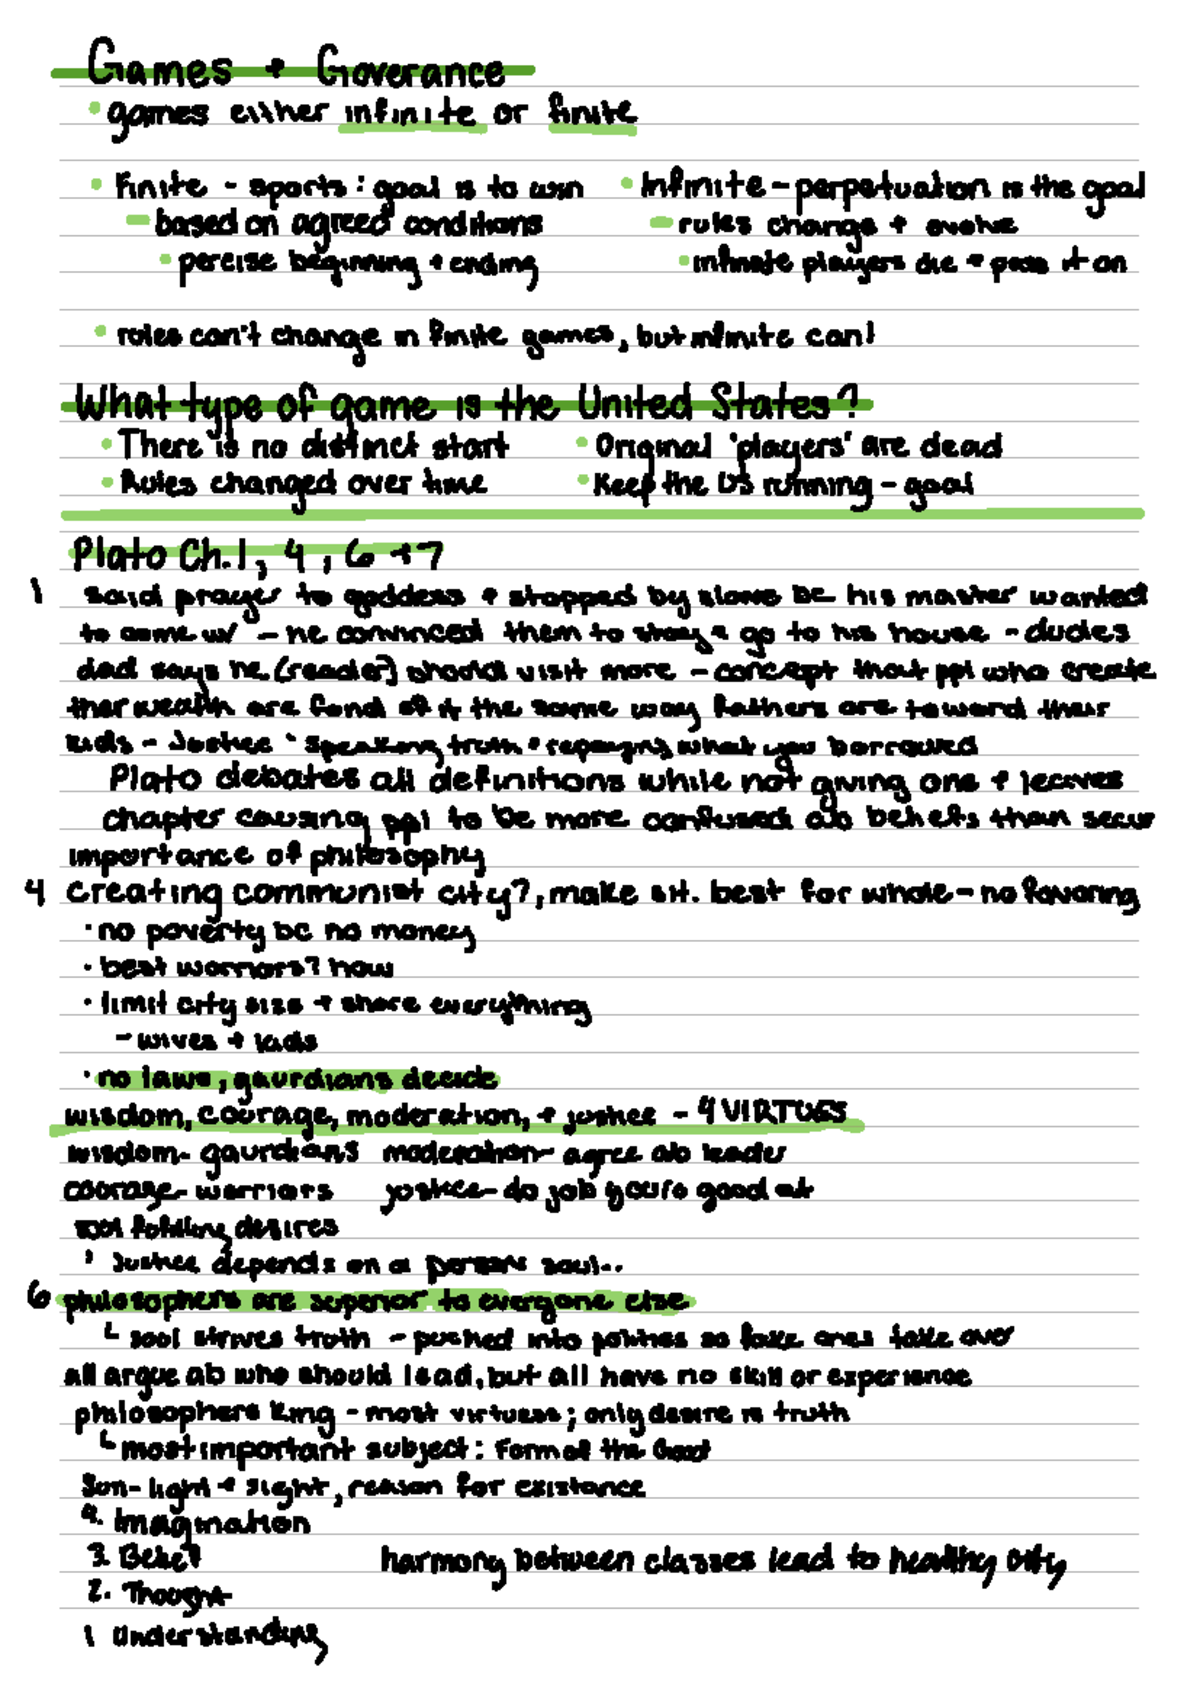 Games + Goverance
• games either infinite or finite
• Finite - sports: goal is to win
– based on agreed conditions
• percise beginning + ending
• Infinite - perpetuation is the goal
– rules change + evolve
• infinate players die + pass it on
• roles can't change in finite games, but infinite can!
What type of game is the United States?
• There is no distinct start
• Rules changed over time
• Original 'players' are dead
• Keep the US running - goal
Plato Ch. 1, 4, 6 + 7
1 said prayer to goddess + stopped by slave bc his master wanted
to come w/ - he convinced them to stay + go to his house - dudes
dad says he (reader) should visit more - concept that ppl who create
ther wealth are fond of it the same way fathers are toward their
kids - Justice speaking truth + repaying what you borrowed
Plato debates all definitions while not giving one + leaves
chapter causing ppl to be more confused ab beliefs than secur
importance of philosophy
4 creating communist city?, make sit. best for whole - no favoring
• no poverty bc no money
• best worriors? how
• limit city size + share everything
- wives + kids
• no laws, gaurdians decide
wisdom, courage, moderation, + justice - 4 VIRTUES
wisdom- gaurdians moderation- agree ab leader
courage- warriors justice- do job you're good at
desires
Justice depends on a persons soul..
6 philosophers are superior to everyone else
soul strives truth - pushed into politics so fake ones take over
all argue ab who should lead, but all have no skill or experience
philosophers king - most virtuess; only desire is truth
most important subject: Form of the Good
Sun- light + sight, reason for existance
4. Imagination
3. Belief
2. Thought
1 Understanding
harmony between classes lead to healthy city